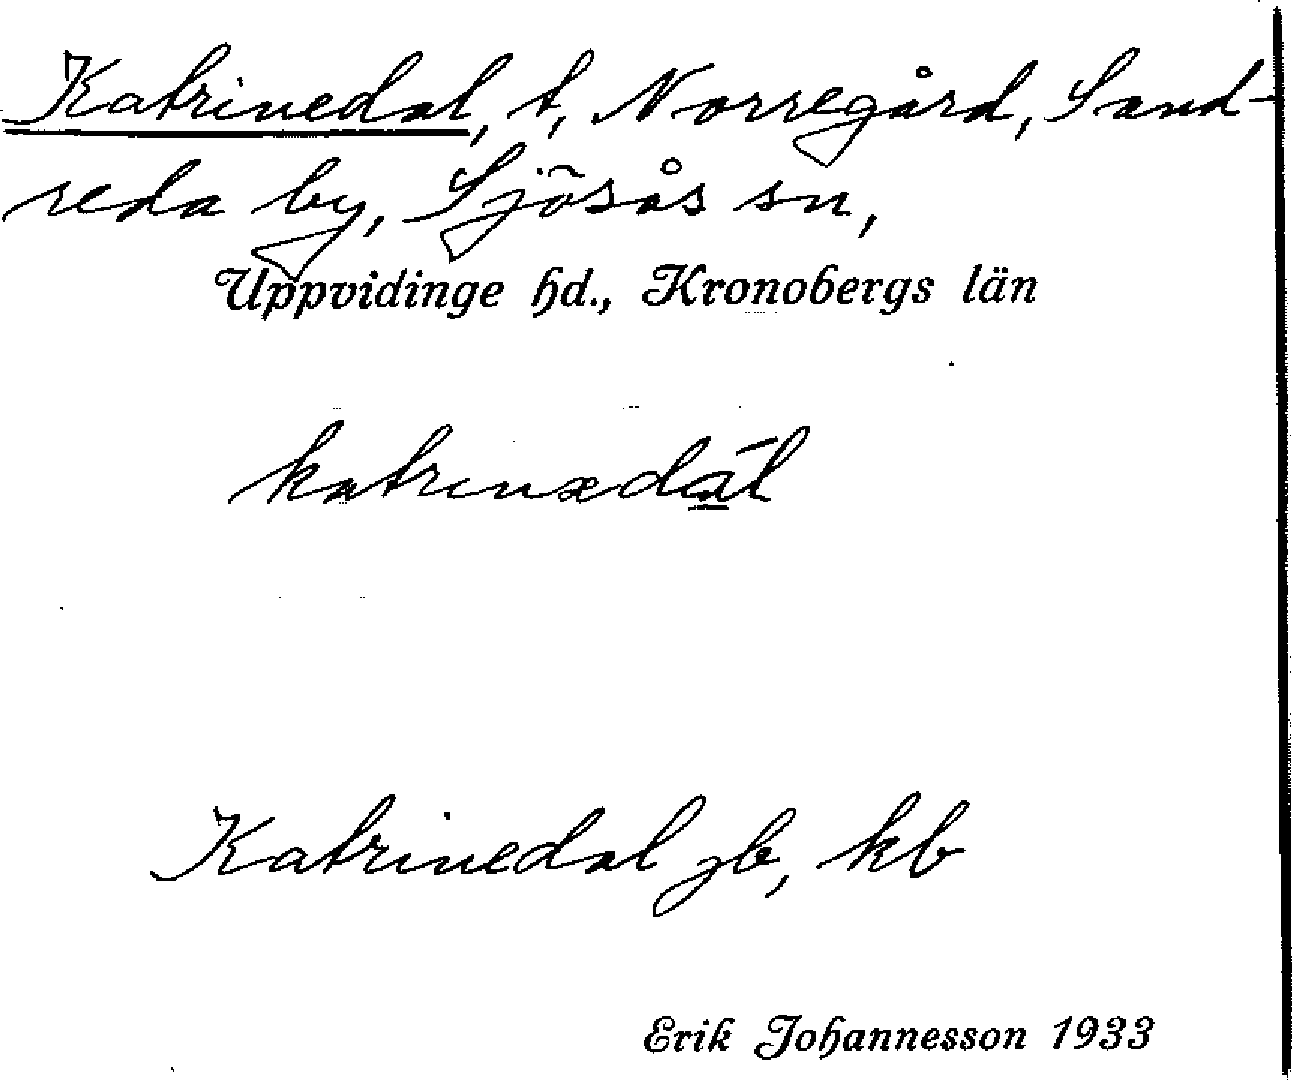 Katrinedal, t, Norregård, Sand-
reda by, Sjösås sn,
Uppvidinge hd., Kronobergs län
katrinædál
Katrinedal jb, kb
Erik Johannesson 1933